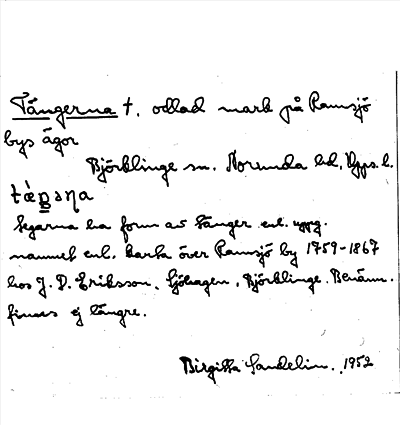 Tångerna †, odlad mark på Ramsjö
bys ägor
Björklinge sn. Norunda hd, Upps. l.
tæ̀ŋəɳa
Tegarna ha form av tånger enl. uppg.
namnet enl. karta över Ramsjö by 1759-1867
hos J. D. Eriksson, Sjöhagen, Björklinge. Benämn.
finnes ej längre.
Birgitta Sandelin. 1952